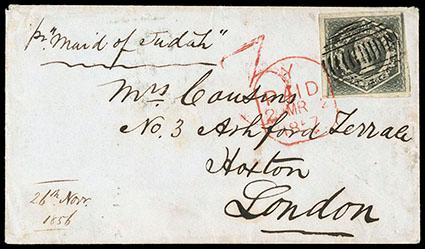 pr "Maid of Judah"
Y
PAID
2 MR 2
1857
Mrs Cousins
No. 3 Ashford Terrace
Hoxton
London
26th Novr.
1856